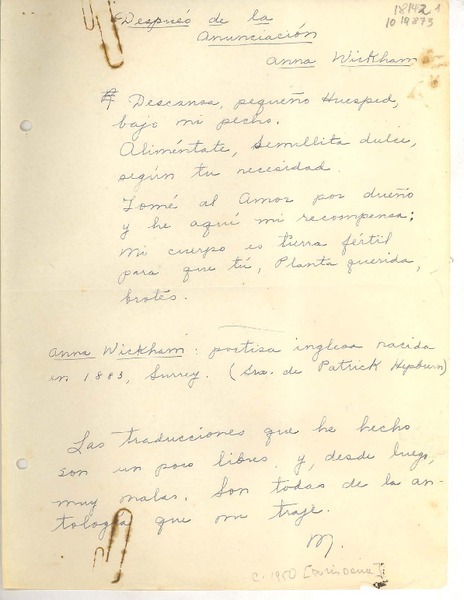 Después de la
Anunciación
Anna Wickham
181421
1019873
Descansa, pequeño Huésped,
bajo mi pecho.
Aliméntate, Semillita dulce,
según tu necesidad.
Tomé al Amor por dueño
y he aquí mi recompensa;
mi cuerpo es tierra fértil
para que tú, Planta querida,
brotes.
Anna Wickham: poetisa inglesa nacida
en 1883, Surrey. (Sra. de Patrick Hepburn)
Las traducciones que he hecho
son un poco libres y, desde luego,
muy malas. Son todas de la an-
tología que me traje.
M.
c. 1950 [Doris Dana]